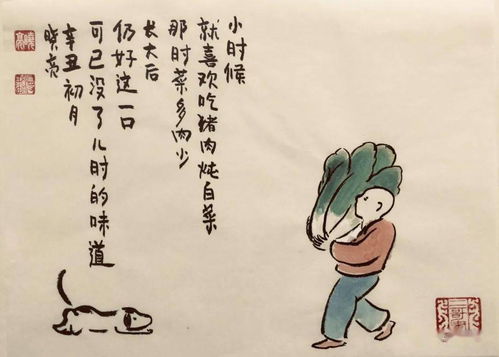 小时候
就喜欢吃猪肉炖白菜
那时菜多肉少
长大后
仍好这一口
可已没了儿时的味道
辛丑初月
晓亮